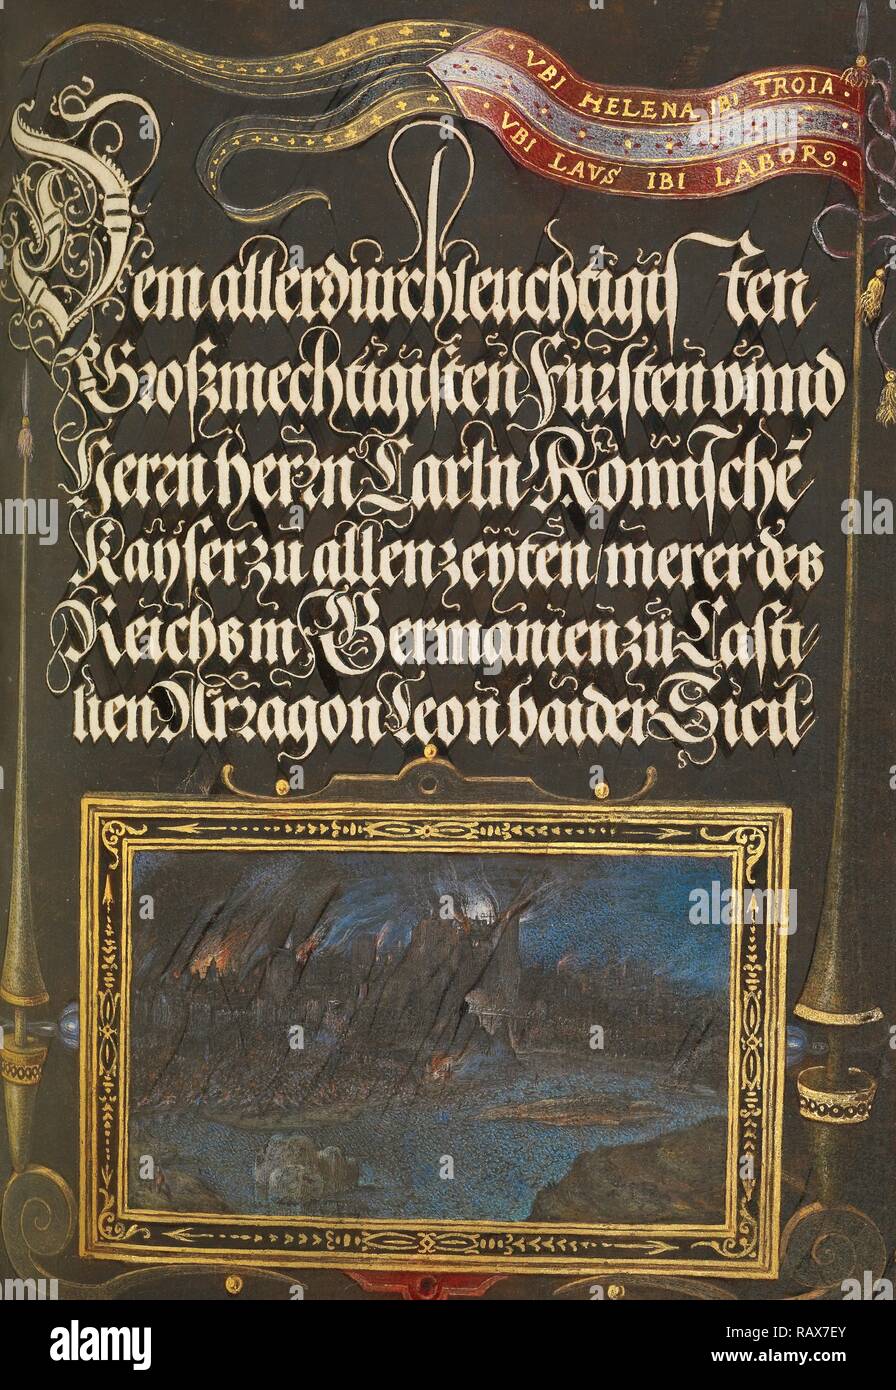 VBI HELENA IBI TROIA.
VBI LAVS IBI LABOR
Dem allerdurchleuchtigisten
Großmechtigisten Fursten vnnd
Herrn herrn Carln Römischē
Kayser zu allen zeyten / merer des
Reichs in Germanien zu Casti
lien Arragon Leon baider Sicil
alamy
alamy stock photo
RAX7EY
www.alamy.com